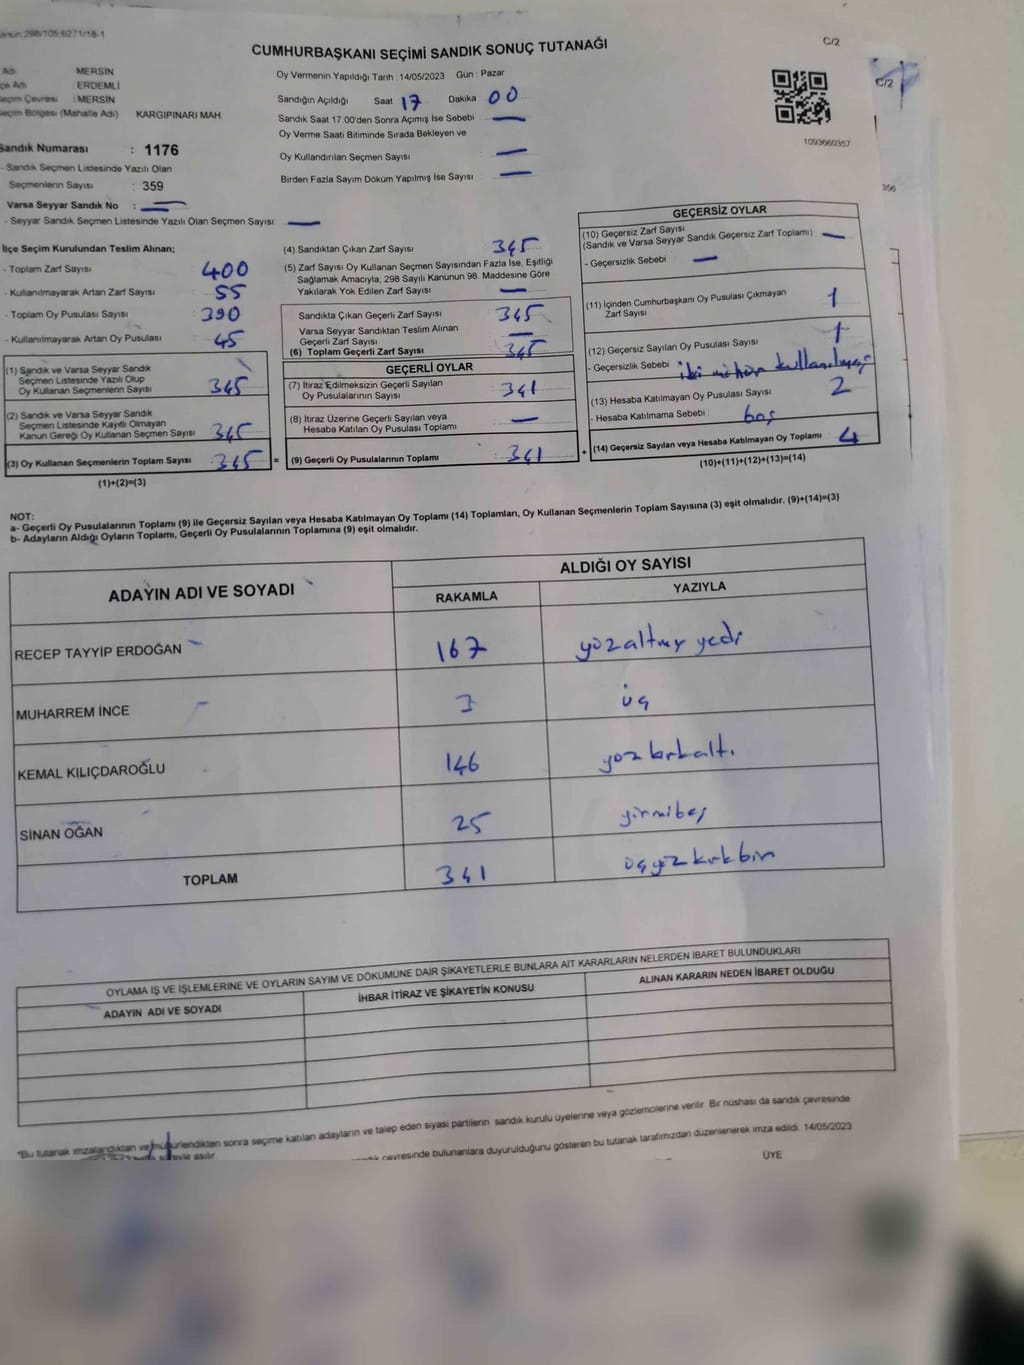 298/105;6271/18-1
C/2
CUMHURBAŞKANI SEÇİMİ SANDIK SONUÇ TUTANAĞI
C/2
Adı MERSİN
Adı ERDEMLİ
Seçim Çevresi : MERSİN
Seçim Bölgesi (Mahalle Adı) KARGIPINARI MAH.
Sandık Numarası : 1176
- Sandık Seçmen Listesinde Yazılı Olan
Seçmenlerin Sayısı : 359
Varsa Seyyar Sandık No : —
- Seyyar Sandık Seçmen Listesinde Yazılı Olan Seçmen Sayısı: —
Oy Vermenin Yapıldığı Tarih :14/05/2023 Gün : Pazar
Sandığın Açıldığı Saat 17 Dakika 00
Sandık Saat 17:00'den Sonra Açımış İse Sebebi —
Oy Verme Saati Bitiminde Sırada Bekleyen ve
Oy Kullandırılan Seçmen Sayısı —
Birden Fazla Sayım Döküm Yapılmış İse Sayısı —
1093660357
356
İlçe Seçim Kurulundan Teslim Alınan;
- Toplam Zarf Sayısı 400
- Kullanılmayarak Artan Zarf Sayısı 55
- Toplam Oy Pusulası Sayısı 390
- Kullanılmayarak Artan Oy Pusulası 45
(1) Sandık ve Varsa Seyyar Sandık
Seçmen Listesinde Yazılı Olup
Oy Kullanan Seçmenlerin Sayısı 345
(2) Sandık ve Varsa Seyyar Sandık
Seçmen Listesinde Kayıtlı Olmayan
Kanun Gereği Oy Kullanan Seçmen Sayısı 345
(3) Oy Kullanan Seçmenlerin Toplam Sayısı : 345 =
(1)+(2)=(3)
(4) Sandıktan Çıkan Zarf Sayısı 345
(5) Zarf Sayısı Oy Kullanan Seçmen Sayısından Fazla İse, Eşitliği
Sağlamak Amacıyla, 298 Sayılı Kanunun 98. Maddesine Göre
Yakılarak Yok Edilen Zarf Sayısı —
Sandıkta Çıkan Geçerli Zarf Sayısı : 345
Varsa Seyyar Sandıktan Teslim Alınan
Geçerli Zarf Sayısı —
(6) Toplam Geçerli Zarf Sayısı : 345
GEÇERLİ OYLAR
(7) İtiraz Edilmeksizin Geçerli Sayılan
Oy Pusulalarının Sayısı : 341
(8) İtiraz Üzerine Geçerli Sayılan veya
Hesaba Katılan Oy Pusulası Toplamı : —
(9) Geçerli Oy Pusulalarının Toplamı : 341 +
GEÇERSİZ OYLAR
(10) Geçersiz Zarf Sayısı
(Sandık ve Varsa Seyyar Sandık Geçersiz Zarf Toplamı) : —
- Geçersizlik Sebebi : —
(11) İçinden Cumhurbaşkanı Oy Pusulası Çıkmayan
Zarf Sayısı 1
(12) Geçersiz Sayılan Oy Pusulası Sayısı 1
- Geçersizlik Sebebi : iki mühür
(13) Hesaba Katılmayan Oy Pusulası Sayısı 2
- Hesaba Katılmama Sebebi : boş
(14) Geçersiz Sayılan veya Hesaba Katılmayan Oy Toplamı : 4
(10)+(11)+(12)+(13)=(14)
NOT:
a- Geçerli Oy Pusulalarının Toplamı (9) ile Geçersiz Sayılan veya Hesaba Katılmayan Oy Toplamı (14) Toplamları, Oy Kullanan Seçmenlerin Toplam Sayısına (3) eşit olmalıdır. (9)+(14)=(3)
b- Adayların Aldığı Oyların Toplamı, Geçerli Oy Pusulalarının Toplamına (9) eşit olmalıdır.
ADAYIN ADI VE SOYADI
ALDIĞI OY SAYISI
RAKAMLA YAZIYLA
RECEP TAYYİP ERDOĞAN 167 yüzaltmış yedi
MUHARREM İNCE 3 üç
KEMAL KILIÇDAROĞLU 146 yüz kırkaltı
SİNAN OĞAN 25 yirmibeş
TOPLAM 341 üçyüz kırkbir
OYLAMA İŞ VE İŞLEMLERİNE VE OYLARIN SAYIM VE DÖKÜMÜNE DAİR ŞİKAYETLERLE BUNLARA AİT KARARLARIN NELERDEN İBARET BULUNDUKLARI
ADAYIN ADI VE SOYADI İHBAR İTİRAZ VE ŞİKAYETİN KONUSU ALINAN KARARIN NEDEN İBARET OLDUĞU
"Bu tutanak imzalandıktan ve mühürlendikten sonra seçime katılan adayların ve talep eden siyasi partilerin sandık kurulu üyelerine veya gözlemcilerine verilir. Bir nüshası da sandık çevresinde
asılır.
çevresinde bulunanlara duyurulduğunu gösteren bu tutanak tarafımızdan düzenlenerek imza edildi. 14/05/2023
ÜYE